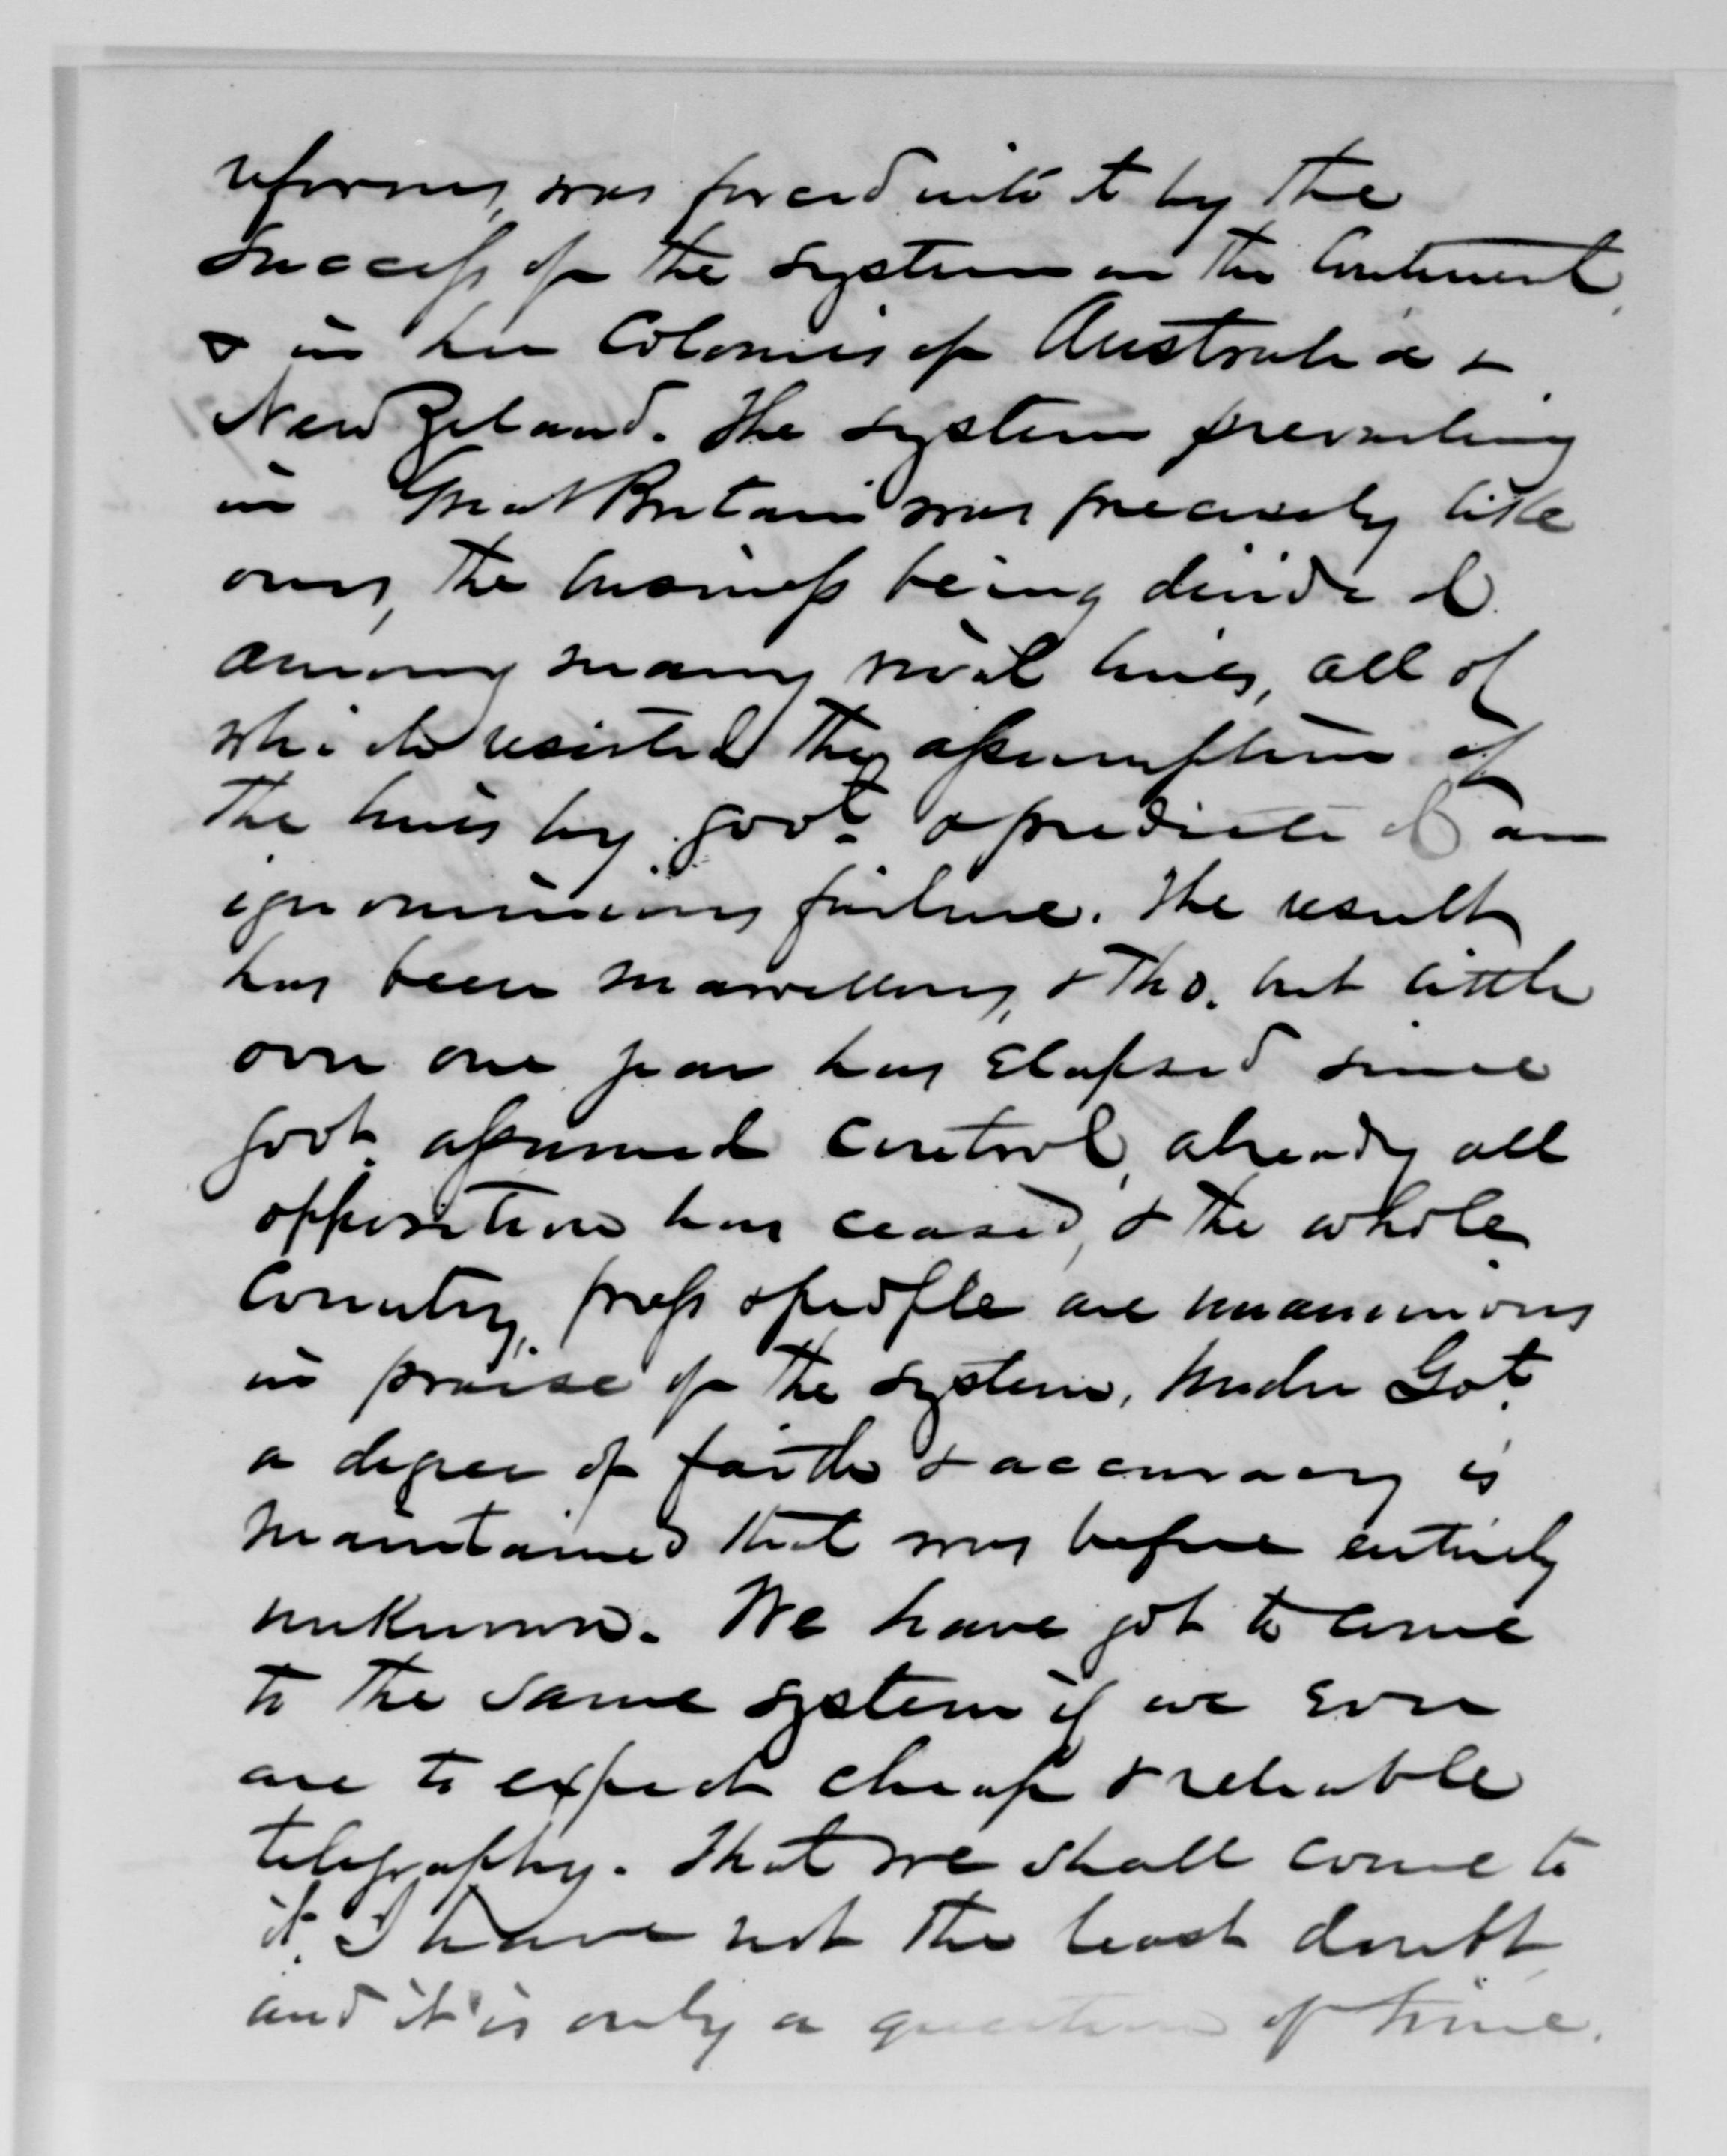 reforms, was forced into it by the
success of the system on the Continent,
& in her Colonies of Australia &
New Zeland. The system prevailing
in Great Britain was precisely like
ours, the business being divided
among many rival lines, all of
which resisted the assumption of
the lines by govt. & predicted an
ignominious failure. The result
has been marvellous, & tho. but little
over one year has elapsed since
govt. assumed control, already all
opposition has ceased, & the whole
Country, press & people are unanimous
in praise of the system. Under Got.
a degree of faith & accuracy is
maintained that was before entirely
unknown. We have got to come
to the same system if we ever
are to expect cheap & reliable
telegraphy. That we shall come to
it, I have not the least doubt
and it is only a question of time.